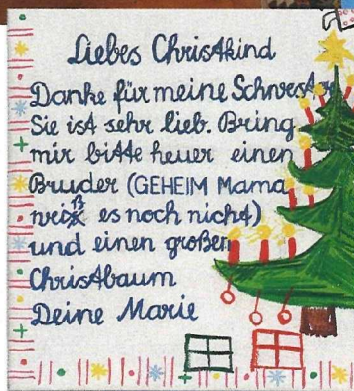 Liebes Christkind
Danke für meine Schwester
Sie ist sehr lieb. Bring
mir bitte heuer einen
Bruder (GEHEIM Mama
weiß es noch nicht)
und einen großen
Christbaum
Deine Marie